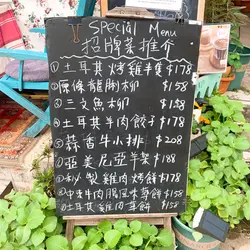 Special Menu
招牌菜推介
①土耳其烤雞半隻$178
②原條龍脷柳 $158
③三文魚柳 $158
④土耳其牛肉餃子$178
⑤蒜香牛小排 $208
⑥亞美尼亞羊架$188
⑦秘製雞肉烤餅$178
⑧中東牛肉腸風味薄餅$158
⑨土耳其雞肉薄餅$158